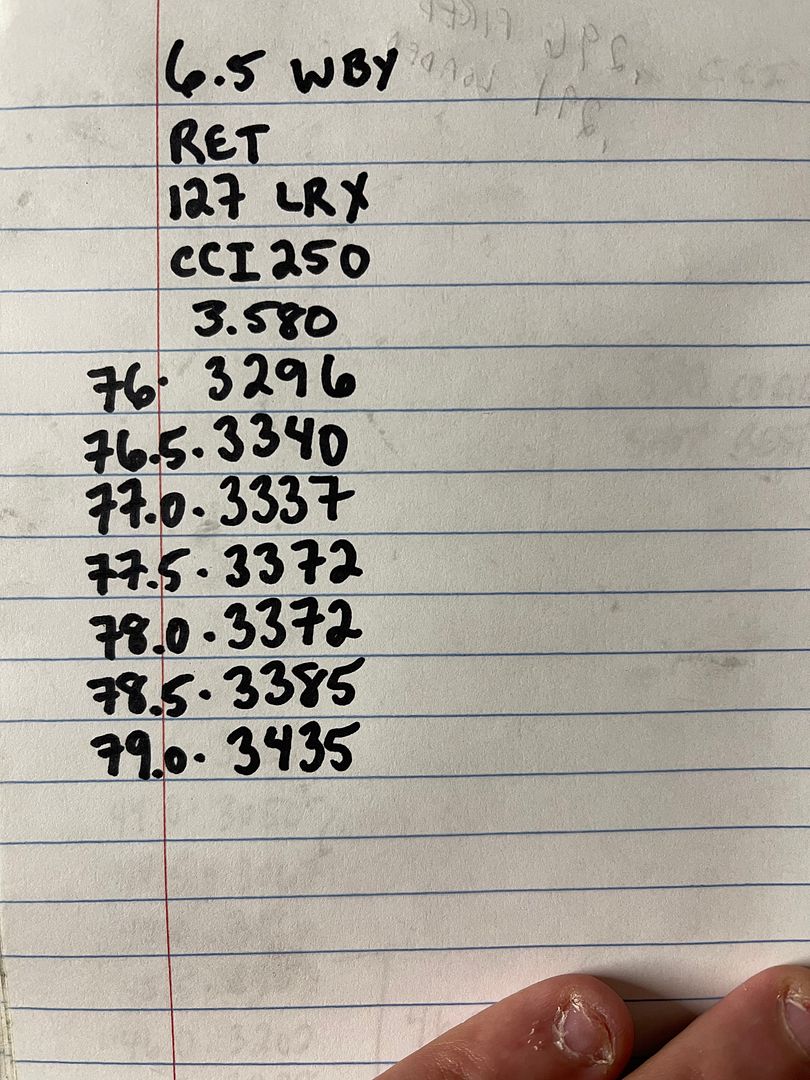 6.5 WBY
RET
127 LRX
CCI 250
3.580
76. 3296
76.5. 3340
77.0. 3337
77.5. 3372
78.0. 3372
78.5. 3385
79.0. 3435